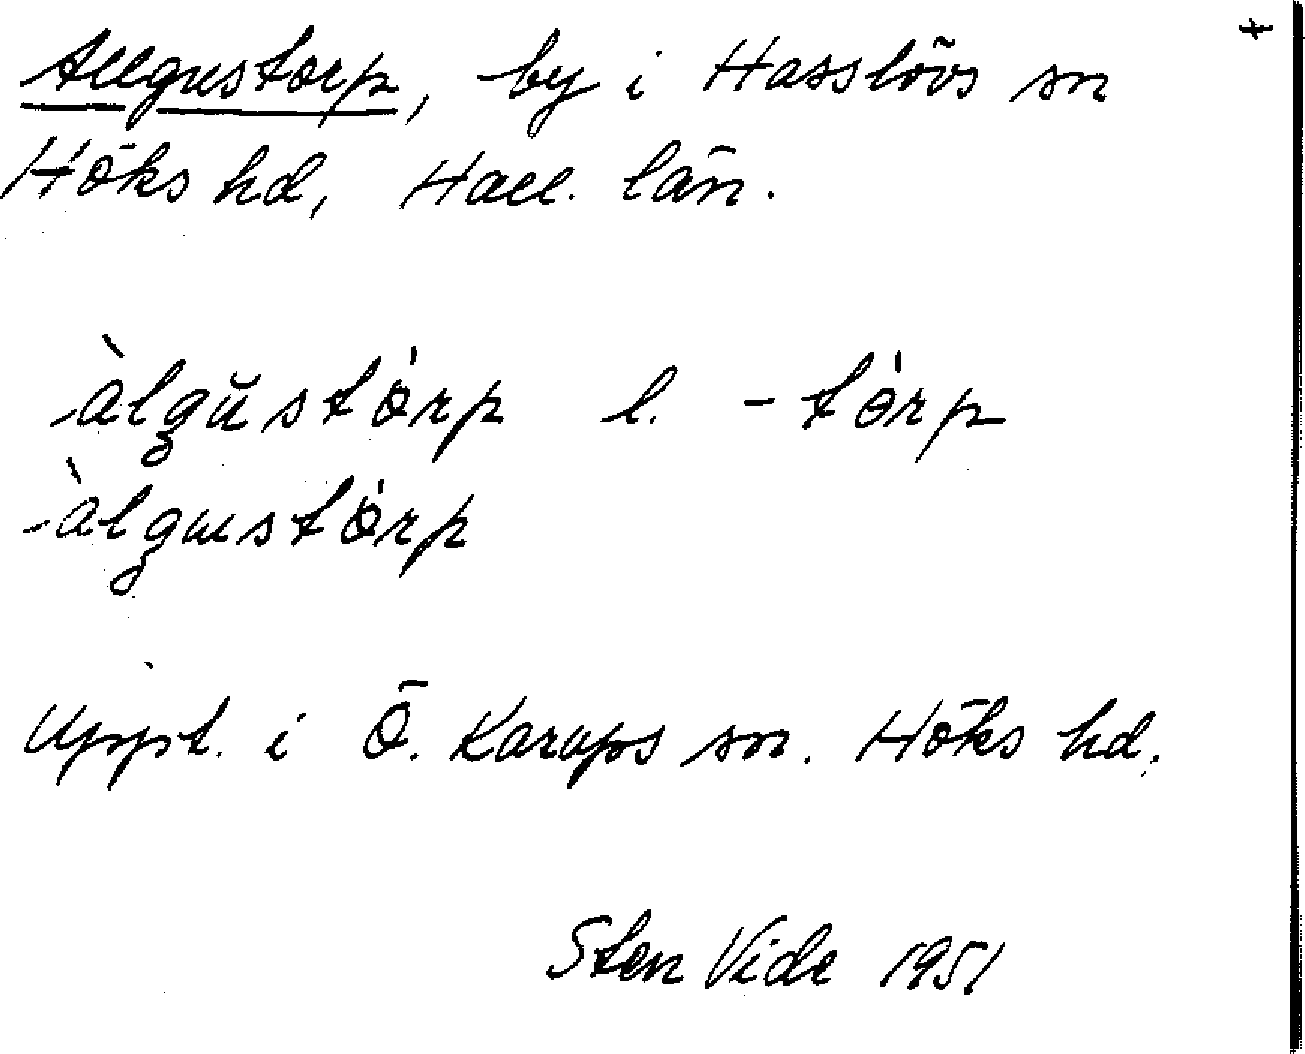 Allgustorp, by i Hasslövs sn
Höks hd, Hall. län.
àlgŭstòrp l. -tòrp
àlgustòrp
Uppt. i Ö. Karups sn. Höks hd.
Sten Vide 1951